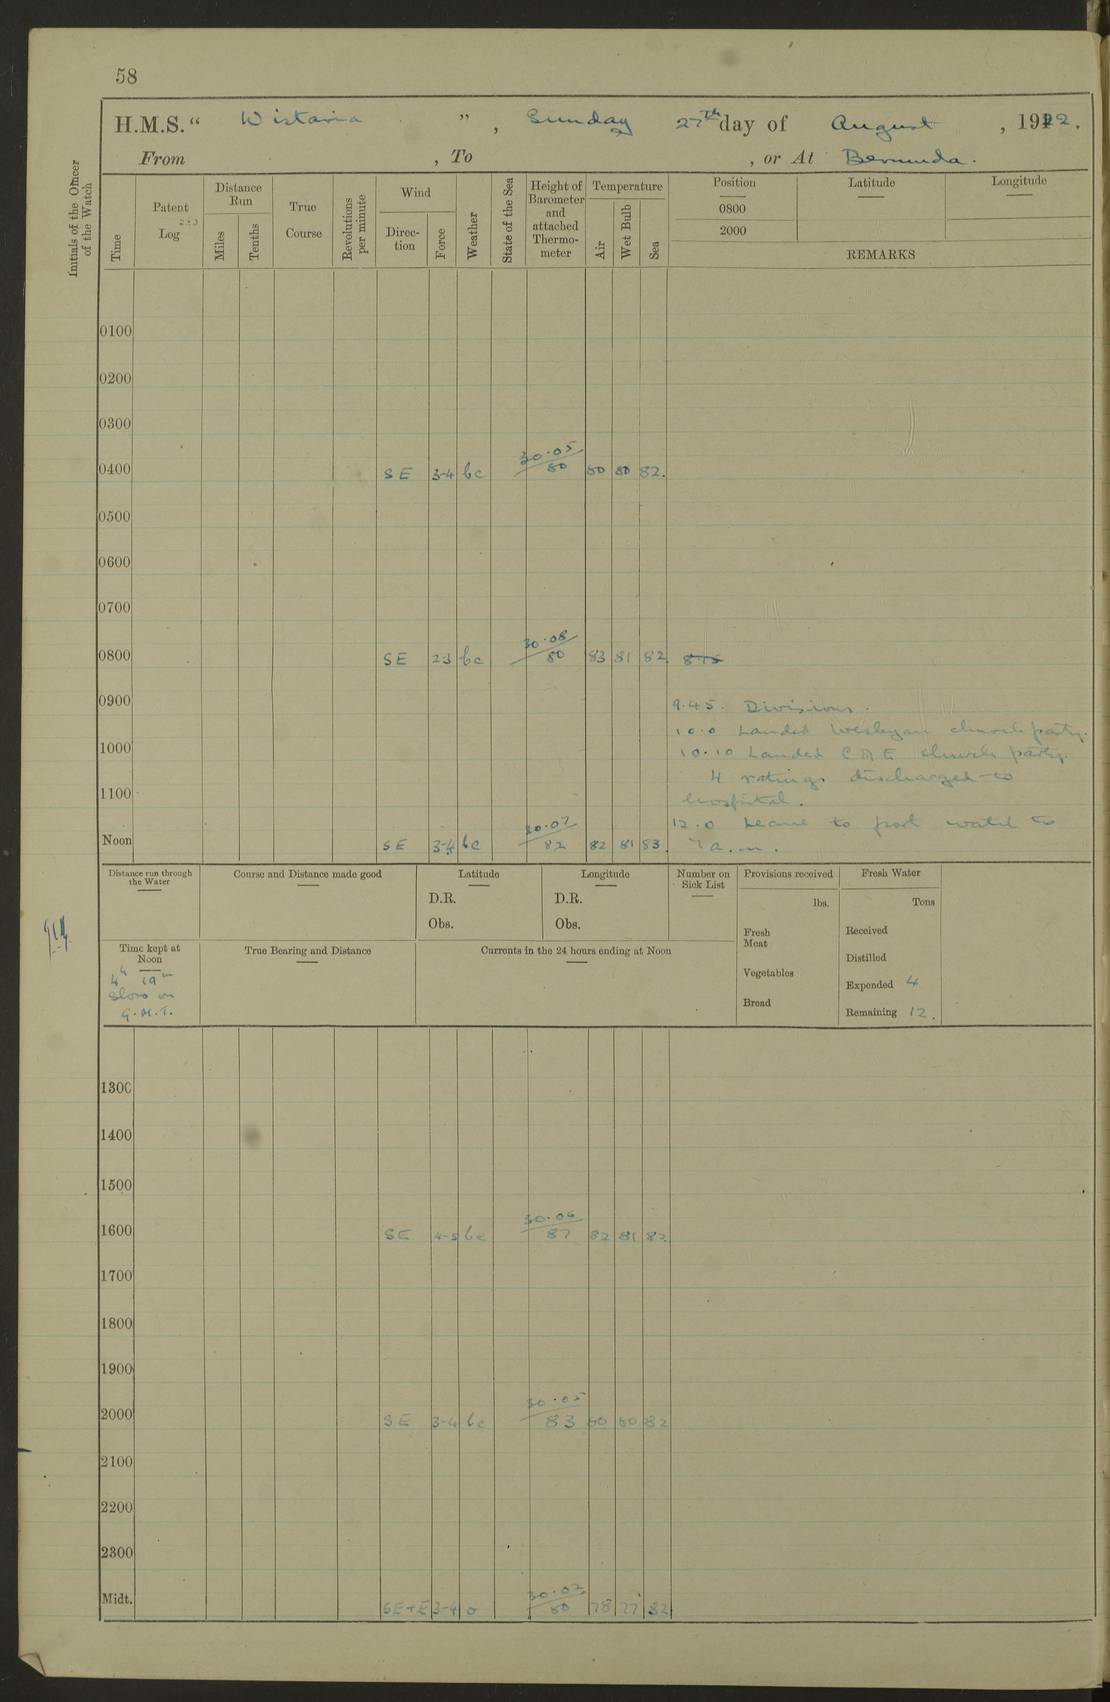 58
H.M.S. “ Wistaria ” , Sunday 27th day of August , 1922.
From , To , or At Bermuda.
Initials of the Officer of the Watch
Time
Patent Log
Distance Run
Miles
Tenths
True Course
Revolutions per minute
Wind
Direction
Force
Weather
State of the Sea
Height of Barometer and attached Thermometer
Temperature
Air
Wet Bulb
Sea
Position Latitude Longitude
0800
2000
REMARKS
0100
0200
0300
0400 SE 3-4 bc 30.05/80 80 80 82.
0500
0600
0700
0800 SE 2-3 bc 30.08/80 83 81 82 8.15
0900 9.45. Divisions.
10.0 Landed Wesleyan church party.
1000 10.10 Landed C of E church party.
4 ratings discharged to
1100 hospital.
12.0 Leave to port watch to
Noon SE 3-4 bc 30.07/82 82 81 83. 7 a.m.
Distance run through the Water
Course and Distance made good
Latitude
D.R.
Obs.
Longitude
D.R.
Obs.
Number on Sick List
Provisions received
lbs.
Fresh Meat
Vegetables
Bread
Fresh Water
Tons
Received
Distilled
Expended 4
Remaining 12.
Time kept at Noon
4h 19m
slow on
G.M.T.
True Bearing and Distance
Currents in the 24 hours ending at Noon
1300
1400
1500
1600 SE 4-5 bc 30.06/82 82 81 82
1700
1800
1900
2000 SE 3-4 bc 30.05/83 80 80 82
2100
2200
2300
Midt. SE+E 3-4 o 30.07/80 78 77 82